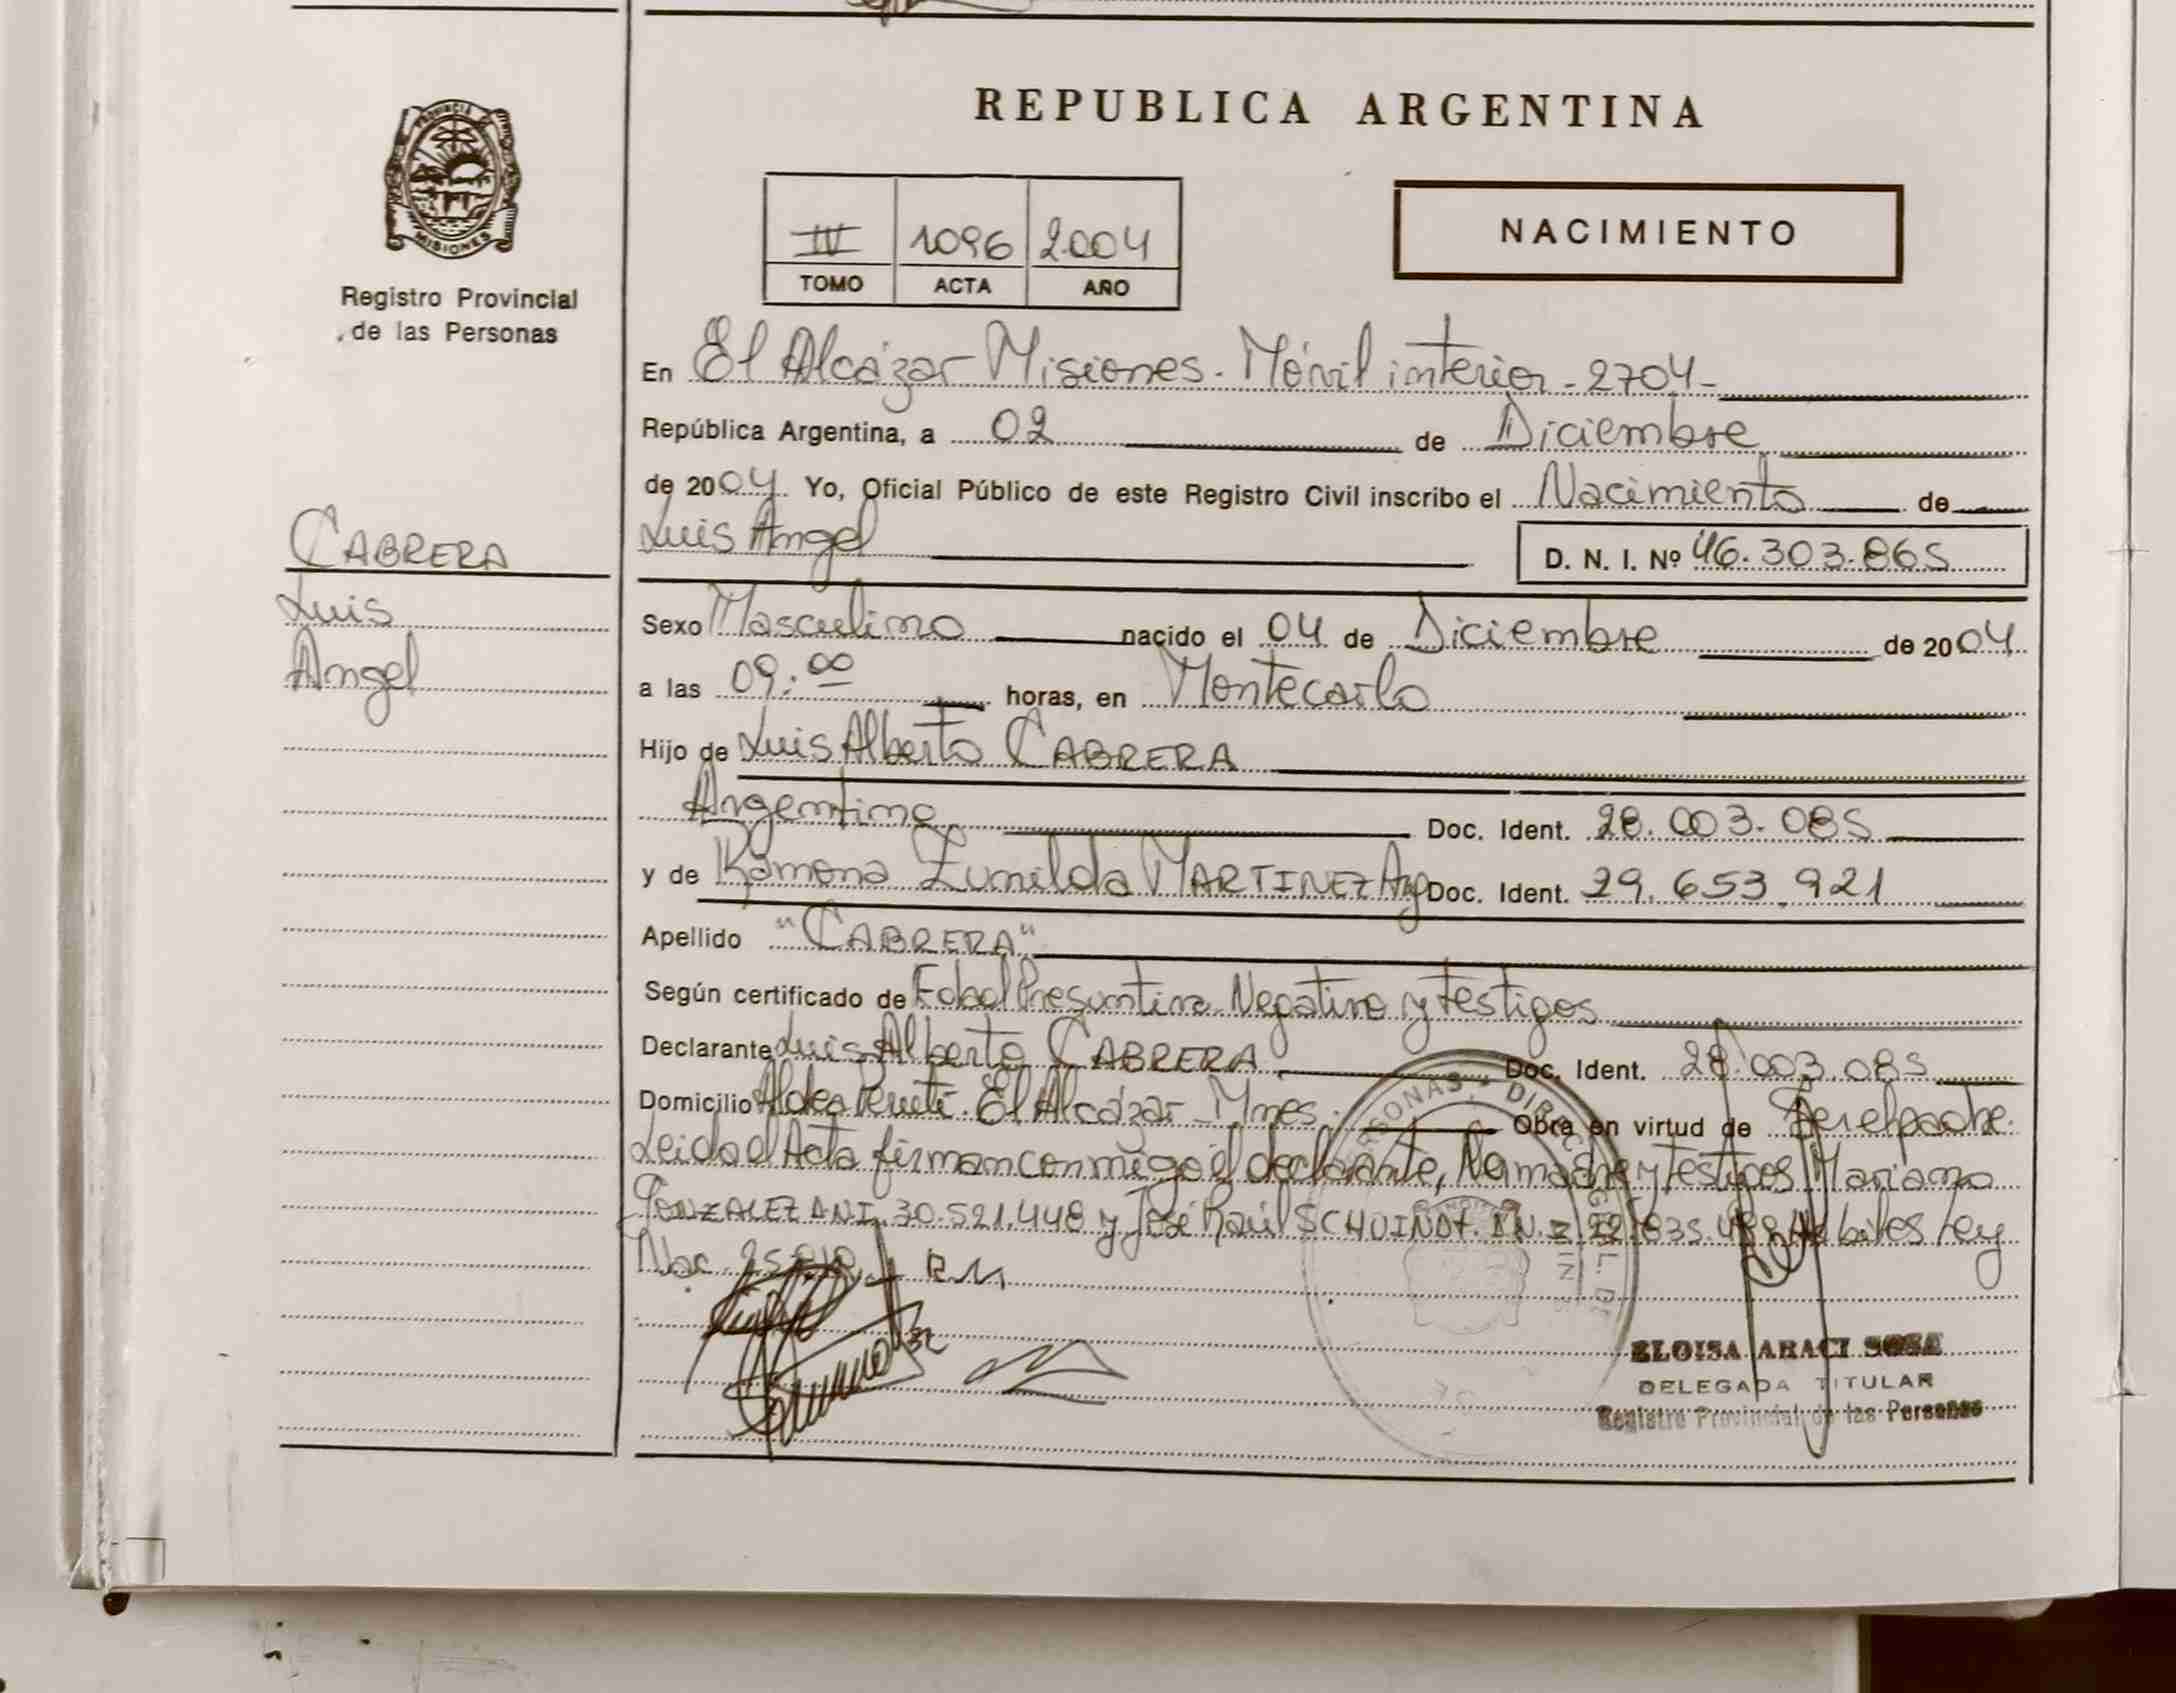 REPUBLICA ARGENTINA
PROVINCIA
MISIONES
Registro Provincial
de las Personas
IV 1096 2.004
TOMO ACTA AÑO
NACIMIENTO
En El Alcázar Misiones. Móvil interior - 2704 -
República Argentina, a 02 de Diciembre
de 2004 Yo, Oficial Público de este Registro Civil inscribo el Nacimiento de
CABRERA
Luis Angel
D. N. I. Nº 46.303.865
Luis
Angel
Sexo Masculino nacido el 04 de Diciembre de 2004
a las 09:00 horas, en Montecarlo
Hijo de Luis Alberto CABRERA
Argentino Doc. Ident. 28.003.085
y de Ramona Zunilda MARTINEZ Arg Doc. Ident. 29.653.921
Apellido "CABRERA"
Según certificado de Edad Presuntiva. Negativo y testigos
Declarante Luis Alberto CABRERA Doc. Ident. 28.003.085
Domicilio Aldea Perutí. El Alcázar - Mnes. Obra en virtud de Ser el padre.
Leida el Acta firman conmigo el declarante, la madre y testigos Mariano
GONZALEZ DNI. 30.521.448 y José Raúl Habiles Ley
Nac.
ELOISA ARACI SOSA
DELEGADA TITULAR
Registro Provincial de las Personas